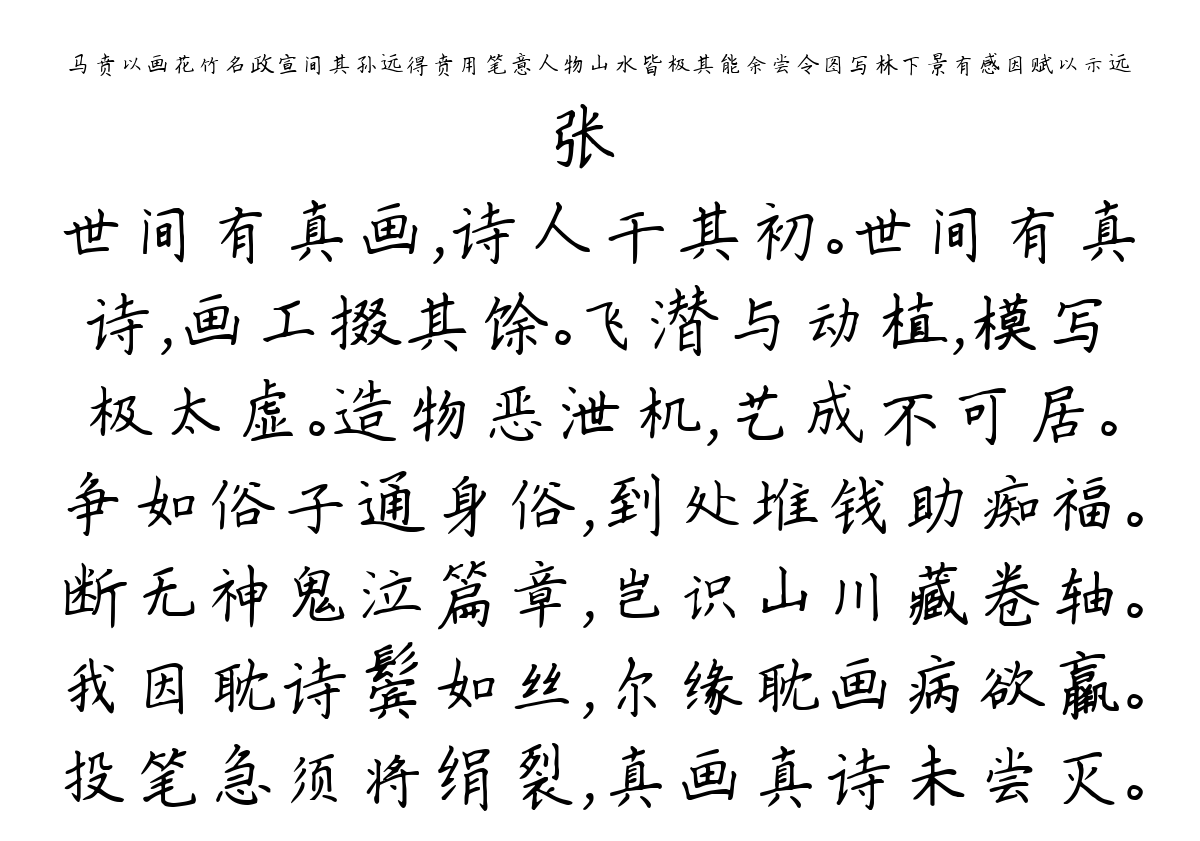 马贲以画花竹名政宣间其孙远得贲用笔意人物山水皆极其能余尝令图写林下景有感因赋以示远
张
世间有真画,诗人干其初。世间有真
诗,画工掇其馀。飞潜与动植,模写
极太虚。造物恶泄机,艺成不可居。
争如俗子通身俗,到处堆钱助痴福。
断无神鬼泣篇章,岂识山川藏卷轴。
我因耽诗鬓如丝,尔缘耽画病欲羸。
投笔急须将绢裂,真画真诗未尝灭。